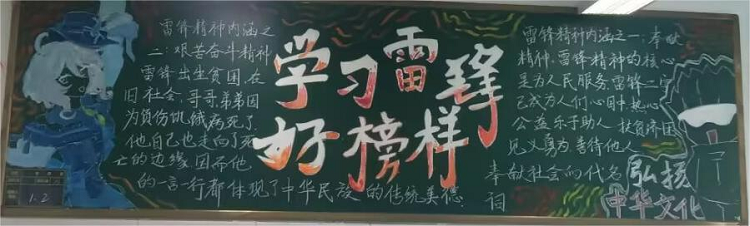 雷锋精神内涵之
二：艰苦奋斗精神
雷锋出生贫困，在
旧社会，哥哥弟弟因
为负伤饥饿病死了
他自己也走向了死
亡的边缘，因而他
的一言一行都体现了中华民族的传统美德
学习雷锋
好榜样
雷锋精神内涵之一：奉献
精神，雷锋精神的核心
是为人民服务，雷锋二字
已成为人们心目中热心
公益乐于助人，扶贫济困
见义勇为，善待他人
奉献社会的代名
词
弘扬
中华文化
1.2